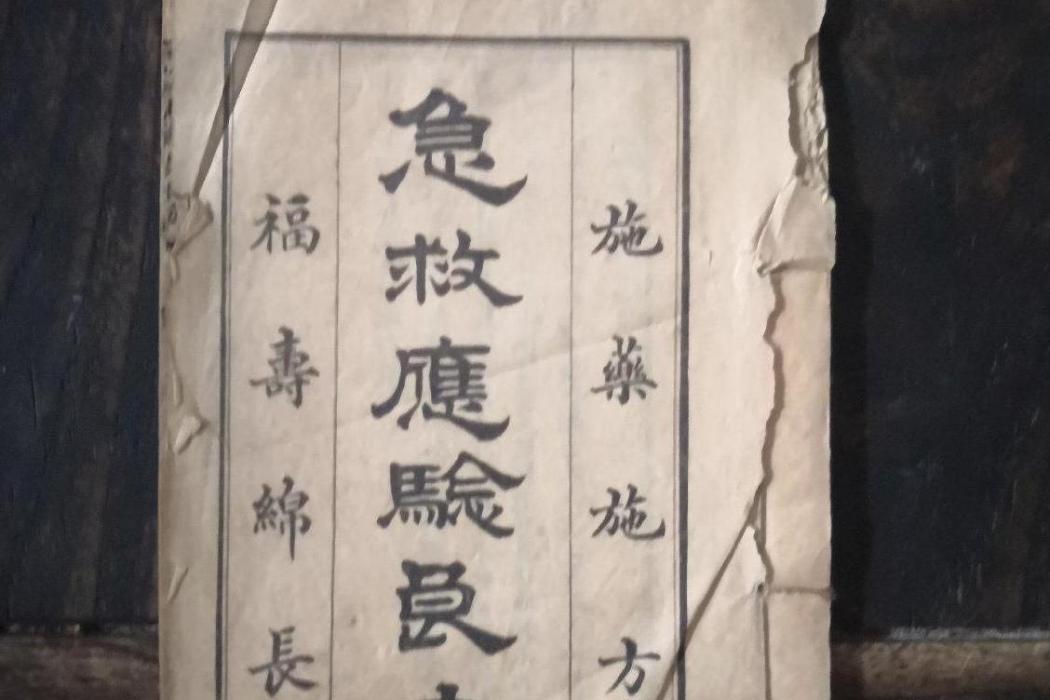 施藥施方
急救應驗良
福壽綿長